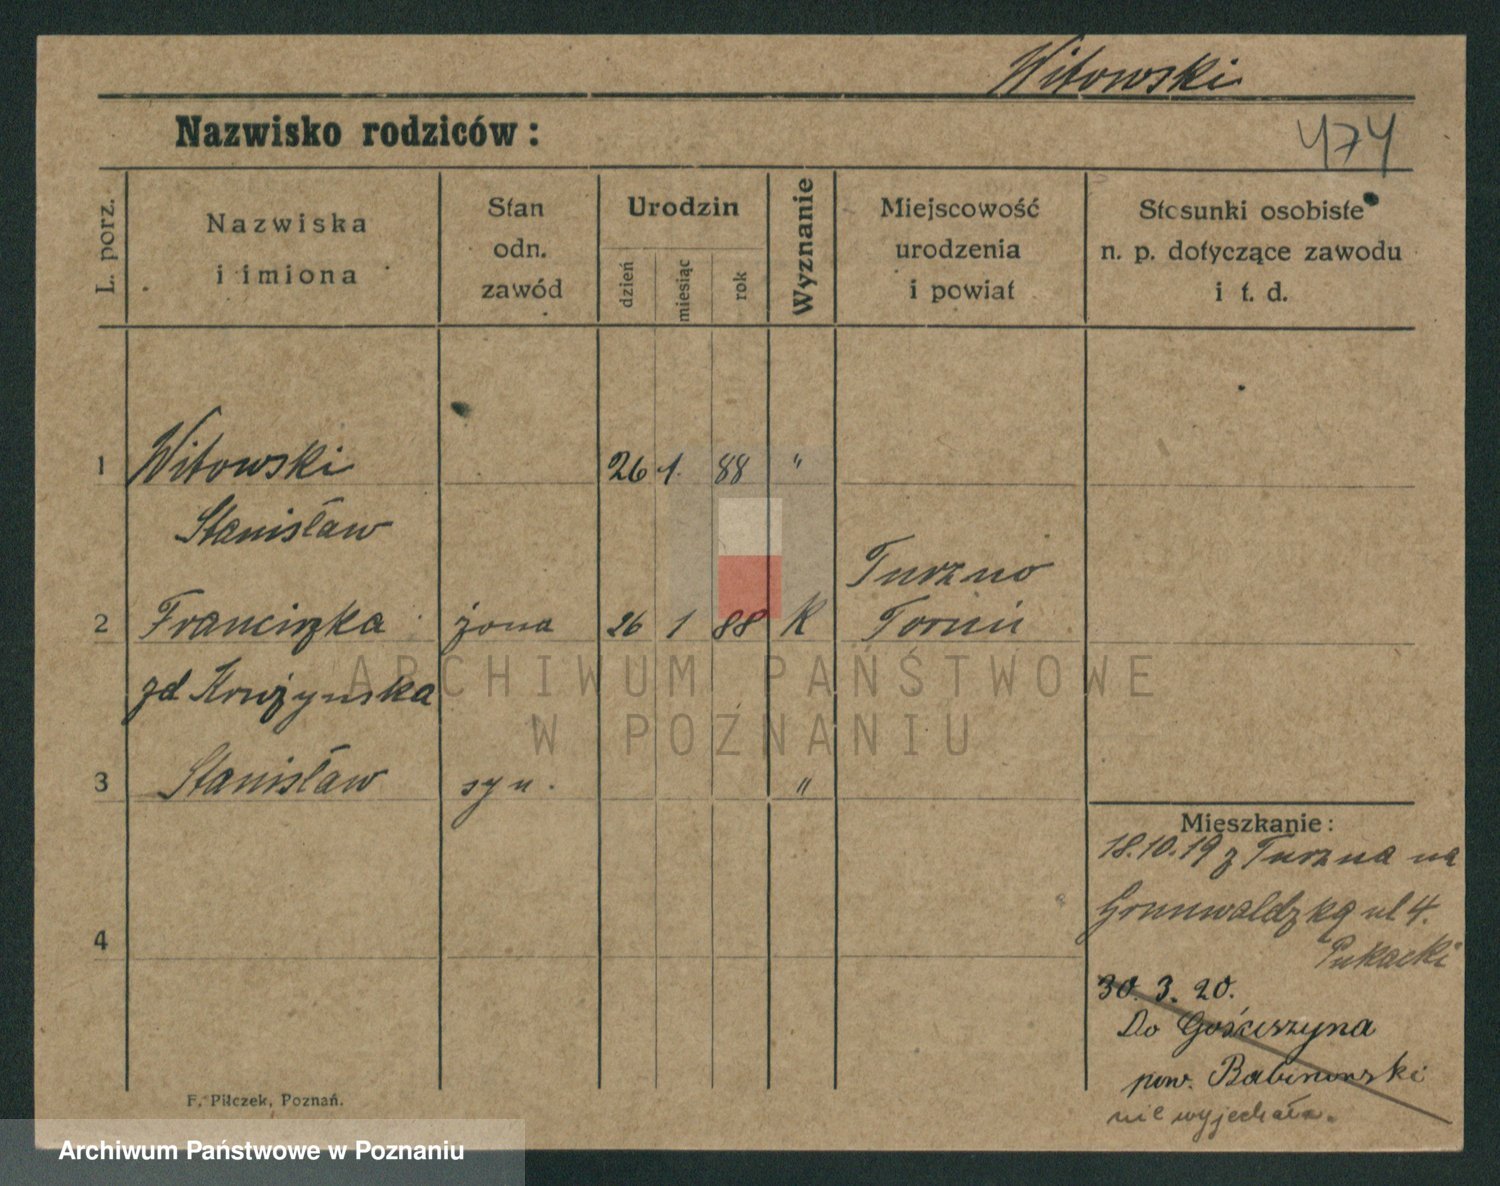 Witowski
Nazwisko rodziców:
474
L. porz.
Nazwiska
i imiona
Stan
odn.
zawód
Urodzin
dzień
miesiąc
rok
Wyznanie
Miejscowość
urodzenia
i powiat
Stosunki osobiste
n. p. dotyczące zawodu
i t. d.
1 Witowski 26 1. 88 "
Stanisław
Turzno
2 Franciszka żona 26 1 88 K Toruń
zd
3 Stanisław syn. "
4
Mieszkanie:
18.10.19 z Turzna na
Grunwaldzką ul 4.
Pukacki
30. 3. 20.
Do Gościszyna
pow. Babimowski
nie wyjechała.
F. Pilczek, Poznań.
ARCHIWUM PAŃSTWOWE
W POZNANIU
Archiwum Państwowe w Poznaniu